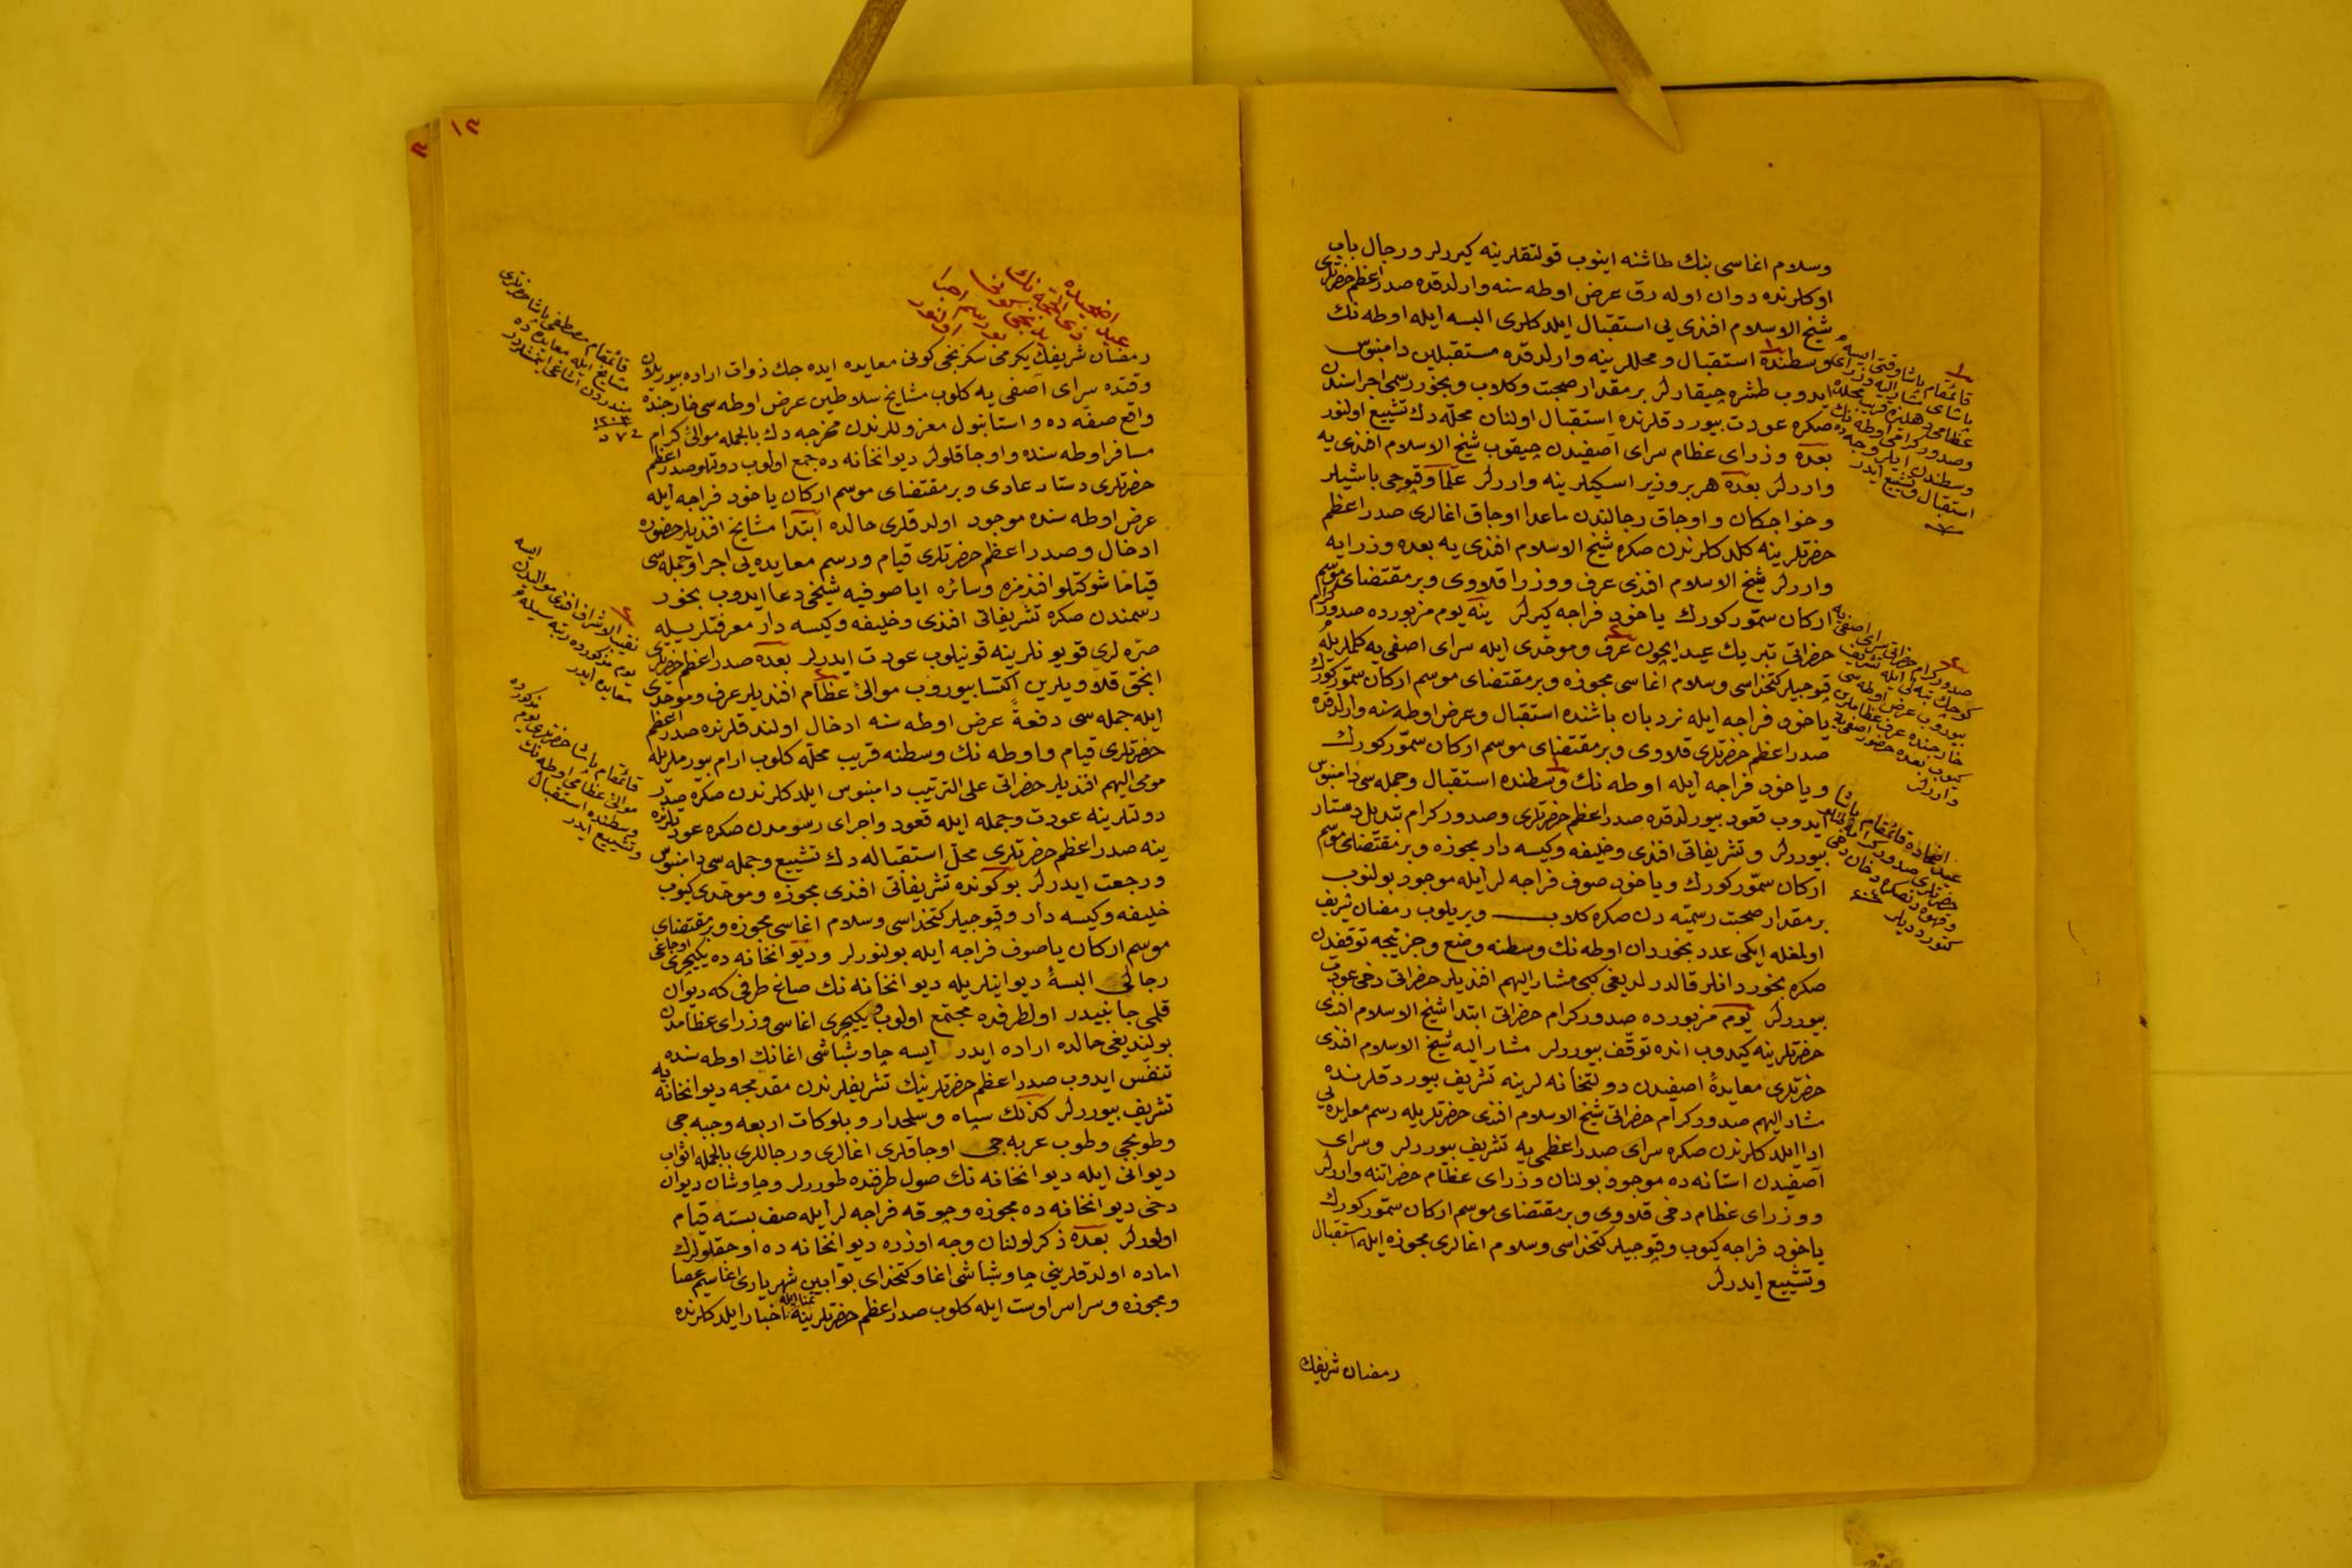 وسلام اغاسی بنك طاشنه اینوب قولتقلرینه كیررلر و رجال باب
اوكلرنده دوان اوله رق عرض اوطه سنه وارلدقده صدر اعظم حضرتلری
شیخ الاسلام افندی یی استقبال ایلدكلری البسه ایله اوطه نك
وسطنده استقبال و محللرینه وارلدقده مستقبلین دامنبوس
ایدوب طشره چیقارلر بر مقدار صحبت وكلاب وبخور رسمی اجراسندن
صكره عودت بیوردقلرنده استقبال اولنان محلّه دك تشییع اولنور
بعده وزرای عظام سرای آصفیدن چیقوب شیخ الاسلام افندی یه
واررلر بعده هر بر وزیر اسكیلرینه واررلر علما وقپوجی باشیلر
و خواجكان و اوجاق رجالندن ماعدا اوجاق اغالری صدر اعظم
حضرتلرینه كلدكلرندن صكره شیخ الاسلام افندی یه بعده وزرایه
واررلر شیخ الاسلام افندی عرف ووزرا قلاوی وبر مقتضای موسم
اركان سمّور كورك یاخود فراجه كیرلر ینه یوم مزبورده صدور كرام
حضراتی تبریك عید ایچون عرف وموحّدی ایله سرای اصفی یه كلملریله
قپوجیلر كتخداسی وسلام اغاسی مجوزه وبر مقتضای موسم اركان سمّور كورك
یاخود فراجه ایله نردبان باشنده استقبال وعرض اوطه سنه وارلدقده
صدر اعظم حضرتلری قلاوی وبر مقتضای موسم اركان سمّور كورك
و یاخود فراجه ایله اوطه نك وسطنده استقبال وجمله سی دامنبوس
ایدوب قعود بیورلدقده صدر اعظم حضرتلری وصدور كرام تبدیل دستار
بیوررلر و تشریفاتی افندی وخلیفه وكیسه دار مجوزه وبر مقتضای موسم
اركان سمّور كورك ویاخود صوف فراجه لر ایله موجود بولنوب
بر مقدار صحبت رسمیّه دن صكره كلاب ویریلوب رمضان شریف
اولمغله ایكی عدد بخوردان اوطه نك وسطنه وضع وجزئیجه توقفدن
صكره بخوردانلر قالدرلدیغی كبی مشار الیهم افندیلر حضراتی دخی عودت
بیوررلر یوم مزبورده صدور كرام حضراتی ابتدا شیخ الاسلام افندی
حضرتلرینه كیدوب انده توقّف بیوررلر مشار الیه شیخ الاسلام افندی
حضرتلری معایدهٔ اصفیدن دولتخانه لرینه تشریف بیوردقلرنده
مشار الیهم صدور كرام حضراتی شیخ الاسلام افندی حضرتلریله رسم معایده یی
ادا ایلدكلرندن صكره سرای صدر اعظمی یه تشریف بیوررلر وسرای
آصفیدن استانه ده موجود بولنان وزرای عظام حضراتنه واررلر
ووزرای عظام دخی قلاوی وبر مقتضای موسم اركان سمّور كورك
یاخود فراجه كیوب وقپوجیلر كتخداسی وسلام اغالری مجوزه ایله استقبال
وتشییع ایدرلر
رمضان شریفك
١
قائمقام پاشا وقتی ایسه
پاشای مشار الیه وزرای
عظامی دهلیزه قریب محلده
وصدور كرامی اوطه نك
وسطندن ایلروجه ده
استقبال وتشییع ایدر
٢
صدور كرام حضراتی سرای اصفی یه
كوچك بنه لی ایله تشریف
بیوروب عرض اوطه سی
خارجنده عرف عظاملرین
كیوب بعده حضور اصفی یه
واررلر
عید اضحاده قائمقام پاشا
حضرتلری صدور كرامه
وقهوه دنصكره دخان دخی
كتوردیلر
١٢
عید اضحیده
ذی الحجّه نك
یدنجی كونی
بو رسم اجرا
اولنور
رمضان شریفك یكرمی سكزنجی كونی معایده ایده جك ذوات اراده بیوریلان
وقتده سرای آصفی یه كلوب مشایخ سلاطین عرض اوطه سی خارجنده
واقع صفّه ده و استانبول معزوللرندن مخرجه دك بالجمله موالئ كرام
مسافر اوطه سنده و اوجاقلولر دیوانخانه ده جمع اولوب دولتلو صدر اعظم
حضرتلری دستار عادی وبر مقتضای موسم اركان یاخود فراجه ایله
عرض اوطه سنده موجود اولدقلری حالده ابتدا مشایخ افندیلر حضوره
ادخال و صدر اعظم حضرتلری قیام ورسم معایده یی اجرا و جمله سی
قیاماً شوكتلو افندمزه وسائره ایاصوفیه شیخی دعا ایدوب بخور
رسمندن صكره تشریفاتی افندی وخلیفه وكیسه دار معرفتلریله
صرّه لری قویونلرینه قونیلوب عودت ایدرلر بعده صدر اعظم حضرتلری
انجق قلاویلرین اكتسا بیوروب موالئ عظام افندیلر عرف وموحّدی
ایله جمله سی دفعةً عرض اوطه سنه ادخال اولندقلرنده صدر اعظم
حضرتلری قیام واوطه نك وسطنه قریب محلّه كلوب ارام بیورملریله
مومی الیهم افندیلر حضراتی علی الترتیب دامنبوس ایلدكلرندن صكره صدر
دولتلرینه عودت وجمله ایله قعود واجرای رسومدن صكره عودتلرنده
ینه صدر اعظم حضرتلری محلّ استقباله دك تشییع وجمله سی دامنبوس
ورجعت ایدرلر بو كونده تشریفاتی افندی مجوزه وموحّدی كیوب
خلیفه وكیسه دار وقپوجیلر كتخداسی وسلام اغاسی مجوزه وبر مقتضای
موسم اركان یا صوف فراجه ایله بولنورلر ودیوانخانه ده یكیچری اوجاغی
رجالی البسهٔ دیوانیلریله دیوانخانه نك صاغ طرفی كه دیوان
قلمی جانبیدر اولطرفده مجتمع اولوب یكیچری اغاسی وزرای عظامدن
بولندیغی حالده اراده ایدر ایسه چاوشباشی اغانك اوطه سنده
تنفّس ایدوب صدر اعظم حضرتلرینك تشریفلرندن مقدمجه دیوانخانه یه
تشریف بیوررلر كذلك سپاه وسلحدار و بلوكات اربعه وجبه جی
وطوپجی وطوب عربه جی اوجاقلری اغالری ورجاللری بالجمله اثواب
دیوانی ایله دیوانخانه نك صول طرفنده طوررلر وچاوشان دیوان
دخی دیوانخانه ده مجوزه وچوقه فراجه لر ایله صف بسته قیام
اولورلر بعده ذكر اولنان وجه اوزره دیوانخانه ده اوجقلولرك
اماده اولدقلرینی چاوشباشی اغا وكتخدای بوّابین شهریاری اغا سیم عصا
ومجوزه وسراسر اوست ایله كلوب صدر اعظم حضرتلرینه اخبار ایلدكلرنده
قائمقام مصطفی پاشا حضرتلری
مشایخ ایله معایده ده
مندردن اشاغی ایتمشلردر
٢
نقیب الاشراف افندی موالیدن ایسه
یوم مذكورده رتبه سیله
معایده ایدر
قائمقام پاشا حضرتلری یوم مذكورده
موالئ عظامی اوطه نك
وسطنده استقبال
وتشییع ایدر